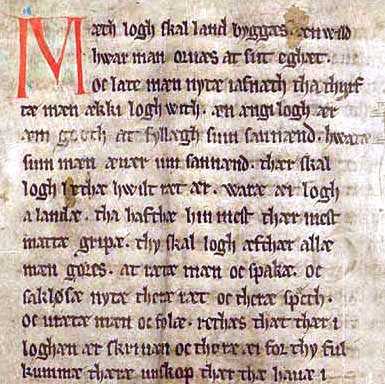 Mæth logh skal land byggæs · æn wild
hwar man oruæs at sitt eghæt.
oc late mæn nytæ iafnæth tha thyrf
tæ mæn ækki logh with · æn ængi logh ær
æm gooth at fyllægh sum sannænd · hwaræ
sum mæn æuær um sannænd · thær skal
logh lethæ hwilt ræt ær · waræ æi logh
a landæ · tha hafthæ hin mest thær mest
mattæ gripæ · thy skal logh æfthær allæ
mæn gøres · at rætæ mæn oc spakæ · oc
sakløsæ nytæ theræ ræt oc theræ spæth ·
oc urætæ mæn oc folæ · rethæs thæt thær i
loghæn ær skriuæn oc thoræ æi for thy ful
kummæ theræ unskop thær the hauæ i